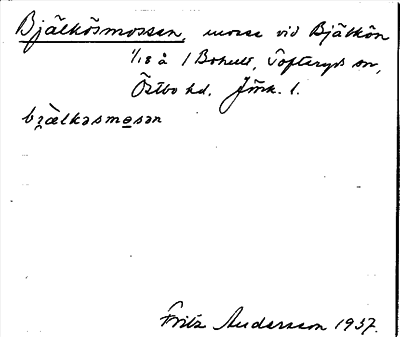 Bjälkösmossen, mosse vid Bjälkön
1/18 å 1 Bohult, Tofteryds sn,
Östbo hd. Jönk. l.
bɿælkəsmɵsən
Fritz Andersson 1937.